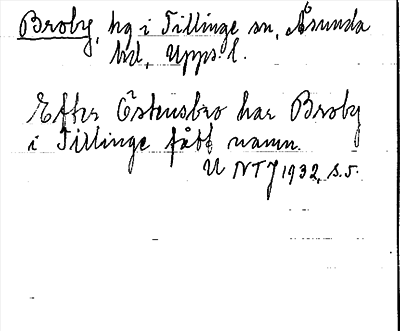 Broby, hg i Tillinge sn, Åsunda
hd, Upps. l.
Efter Östensbro har Broby
i Tillinge fått namn.
U NTJ 1932, s. 5.